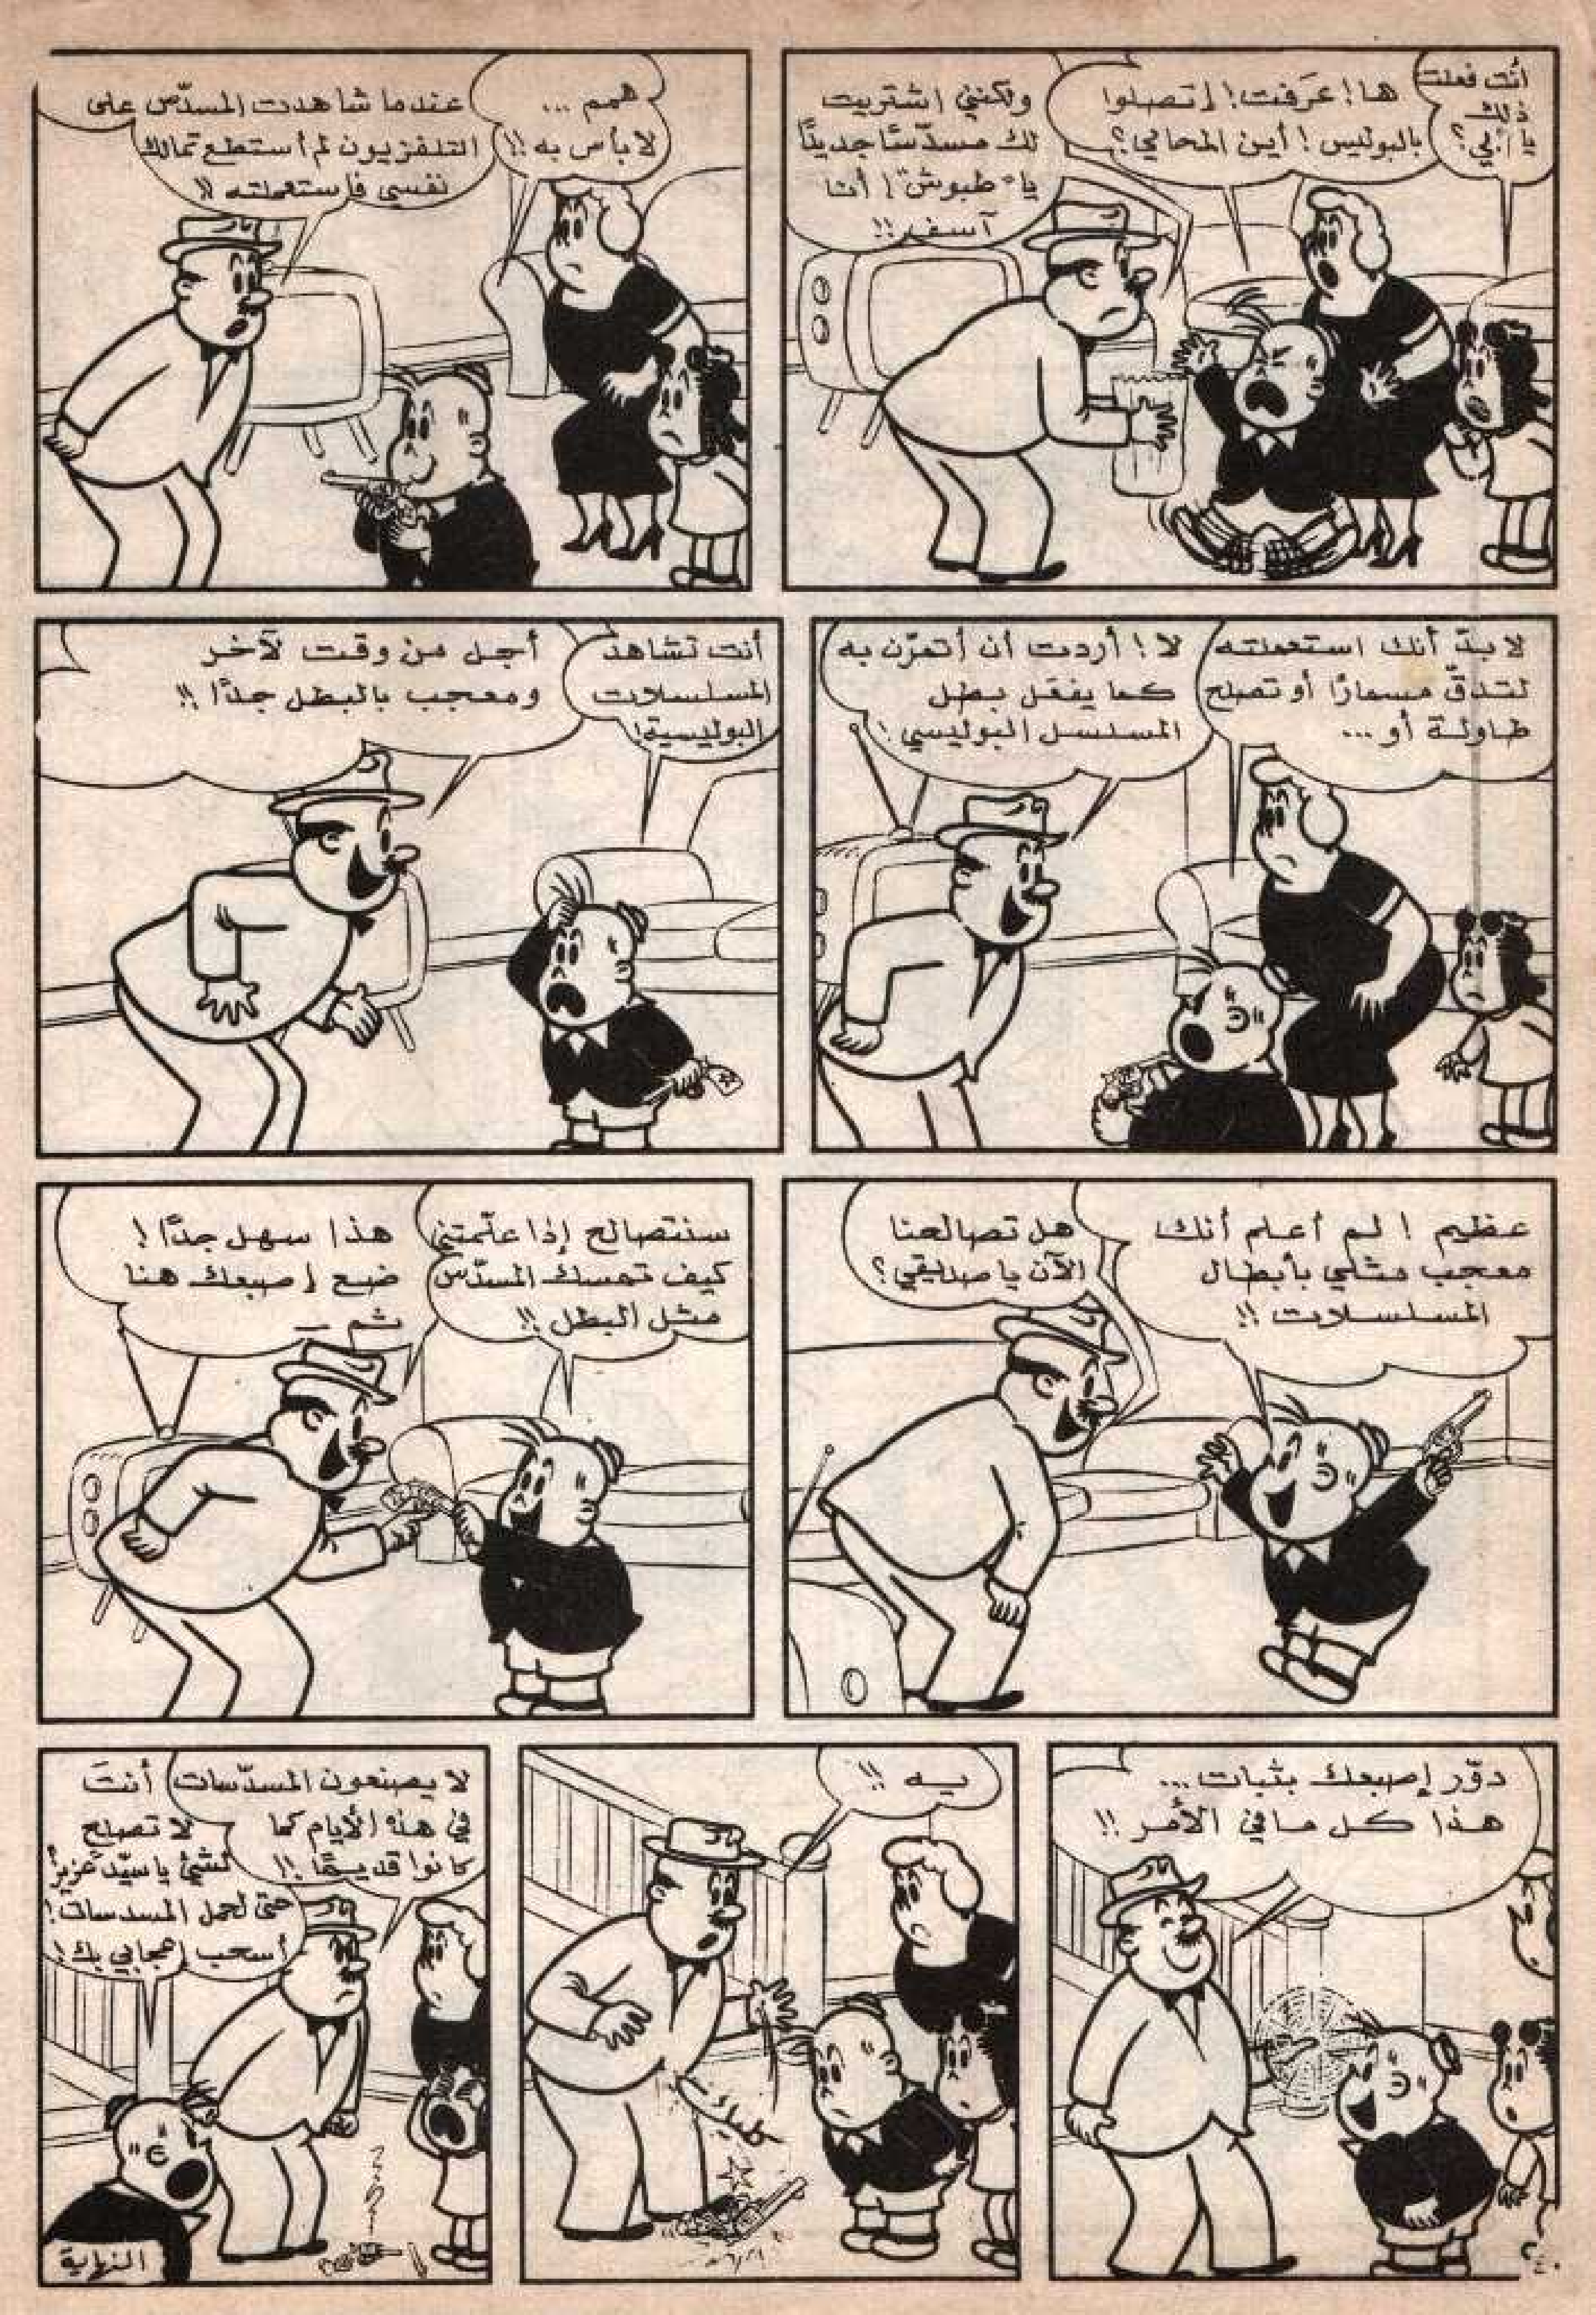 أنت فعلت
ذلك
يا أبي؟
ها! عرفت! إتصلوا
بالبوليس! أين المحامي؟
ولكنني اشتريت
لك مسدّسًا جديدًا
يا "طبوش"! أنا
آسف!!
همم ...
لا بأس به!!
عندما شاهدت المسدّس على
التلفزيون لم أستطع تمالك
نفسي فاستعملته!!
لا بدّ أنك استعملته
لتدقّ مسمارًا أو تصلح
طاولة أو ...
لا! أردت أن أتمرّن به
كما يفعل بطل
المسلسل البوليسي!
أنت تشاهد
المسلسلات
البوليسية!
أجل من وقت لآخر
ومعجب بالبطل جدًا!!
عظيم! لم أعلم أنك
معجب مثلي بأبطال
المسلسلات!!
هل تصالحنا
الآن يا صديقي؟
سنتصالح إذا علّمتني
كيف تمسك المسدّس
مثل البطل!!
هذا سهل جدًا!
ضع إصبعك هنا
ثم _
دوّر إصبعك بثبات ...
هذا كل ما في الأمر!!
يه!!
كليك
لا يصنعون المسدّسات
في هذه الأيام كما
كانوا قديمًا!!
أنتَ
لا تصلح
لشئ يا سيّد عزيز
حتى لحمل المسدسات!
أسحب إعجابي بك!
النهاية
٢٤٠